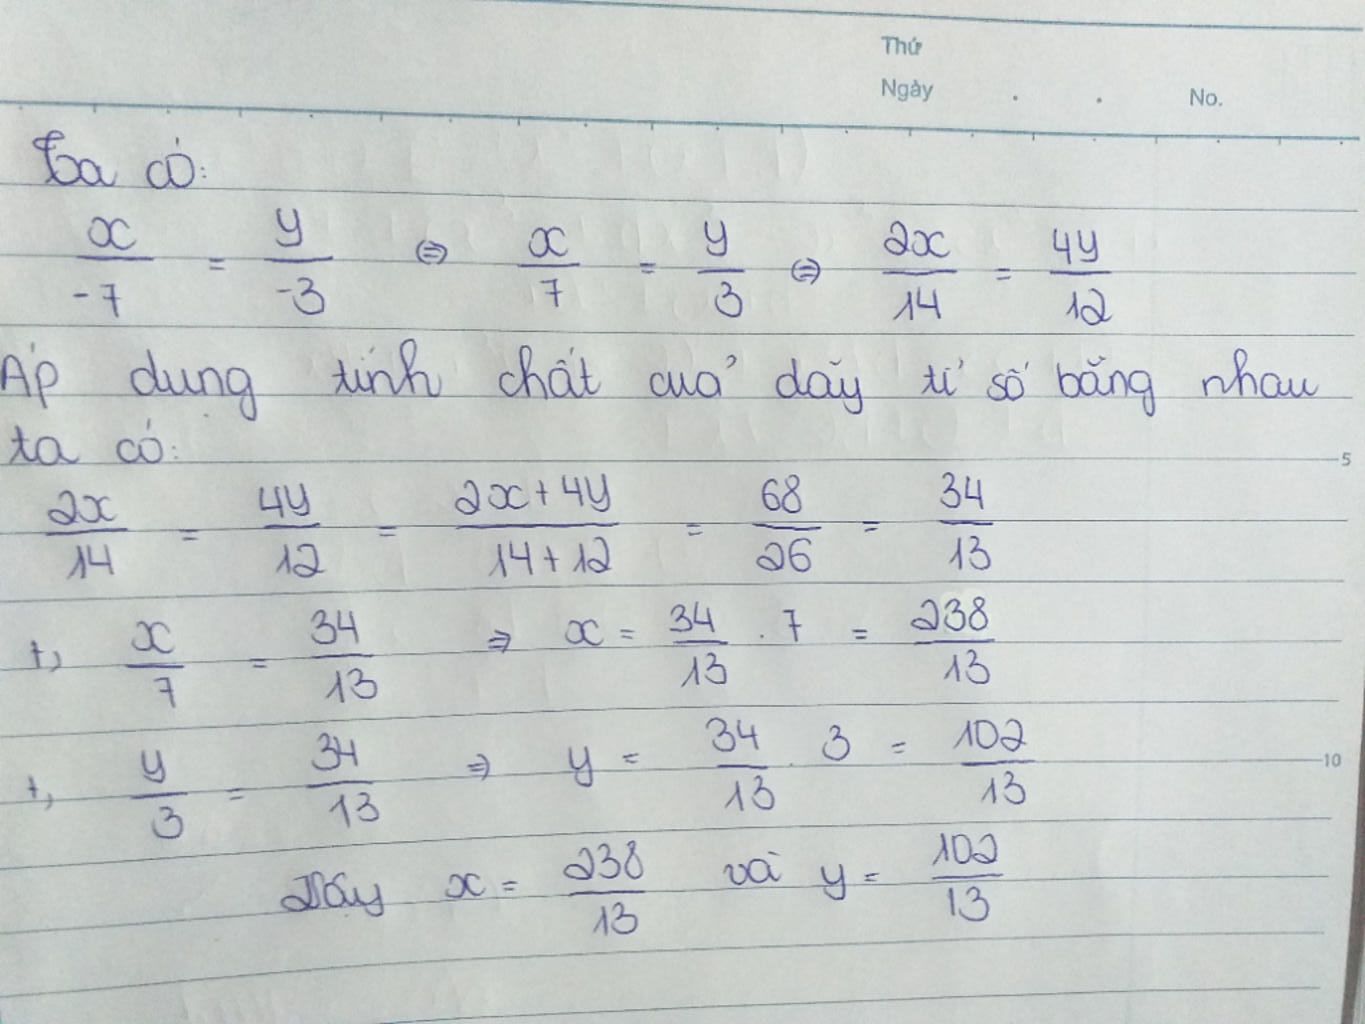 Thứ
Ngày . . No.
Ta có:
x/-7 = y/-3 ⇔ x/7 = y/3 ⇔ 2x/14 = 4y/12
Áp dung tính chất cuả dãy tỉ số bằng nhau
ta có:
5
2x/14 = 4y/12 = 2x+4y/14+12 = 68/26 = 34/13
+, x/7 = 34/13 ⇒ x = 34/13 . 7 = 238/13
+, y/3 = 34/13 ⇒ y = 34/13 . 3 = 102/13
10
Vậy x = 238/13 và y = 102/13